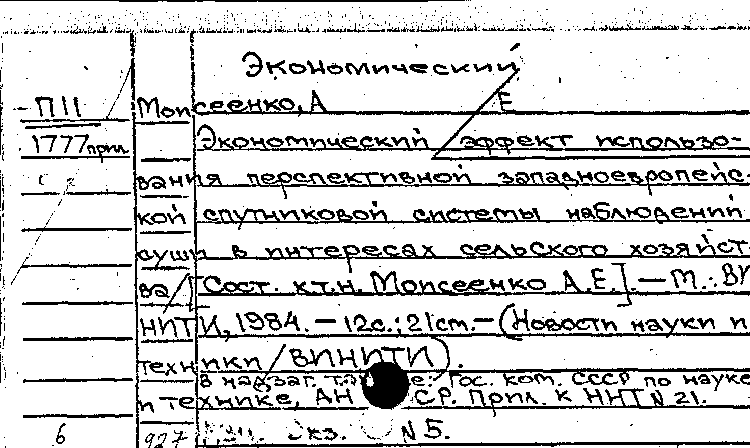 Экономический
П11 Моисеенко, А Е
1777 прил Экономический эффект использо-
вания перспективной западноевропейс-
кой спутниковой системы наблюдений
суши в интересах сельского хозяйст
ва / [Сост. к.т.н. Моисеенко А.Е.]. — М.: ВИ
НИТИ, 1984. — 12с.; 21см. — (Новости науки и
техники / ВИНИТИ).
в надзаг. Гос. ком. СССР по науке
и технике, АН СССР. Прил. к ННТ N 21.
6 927 экз. N 5.